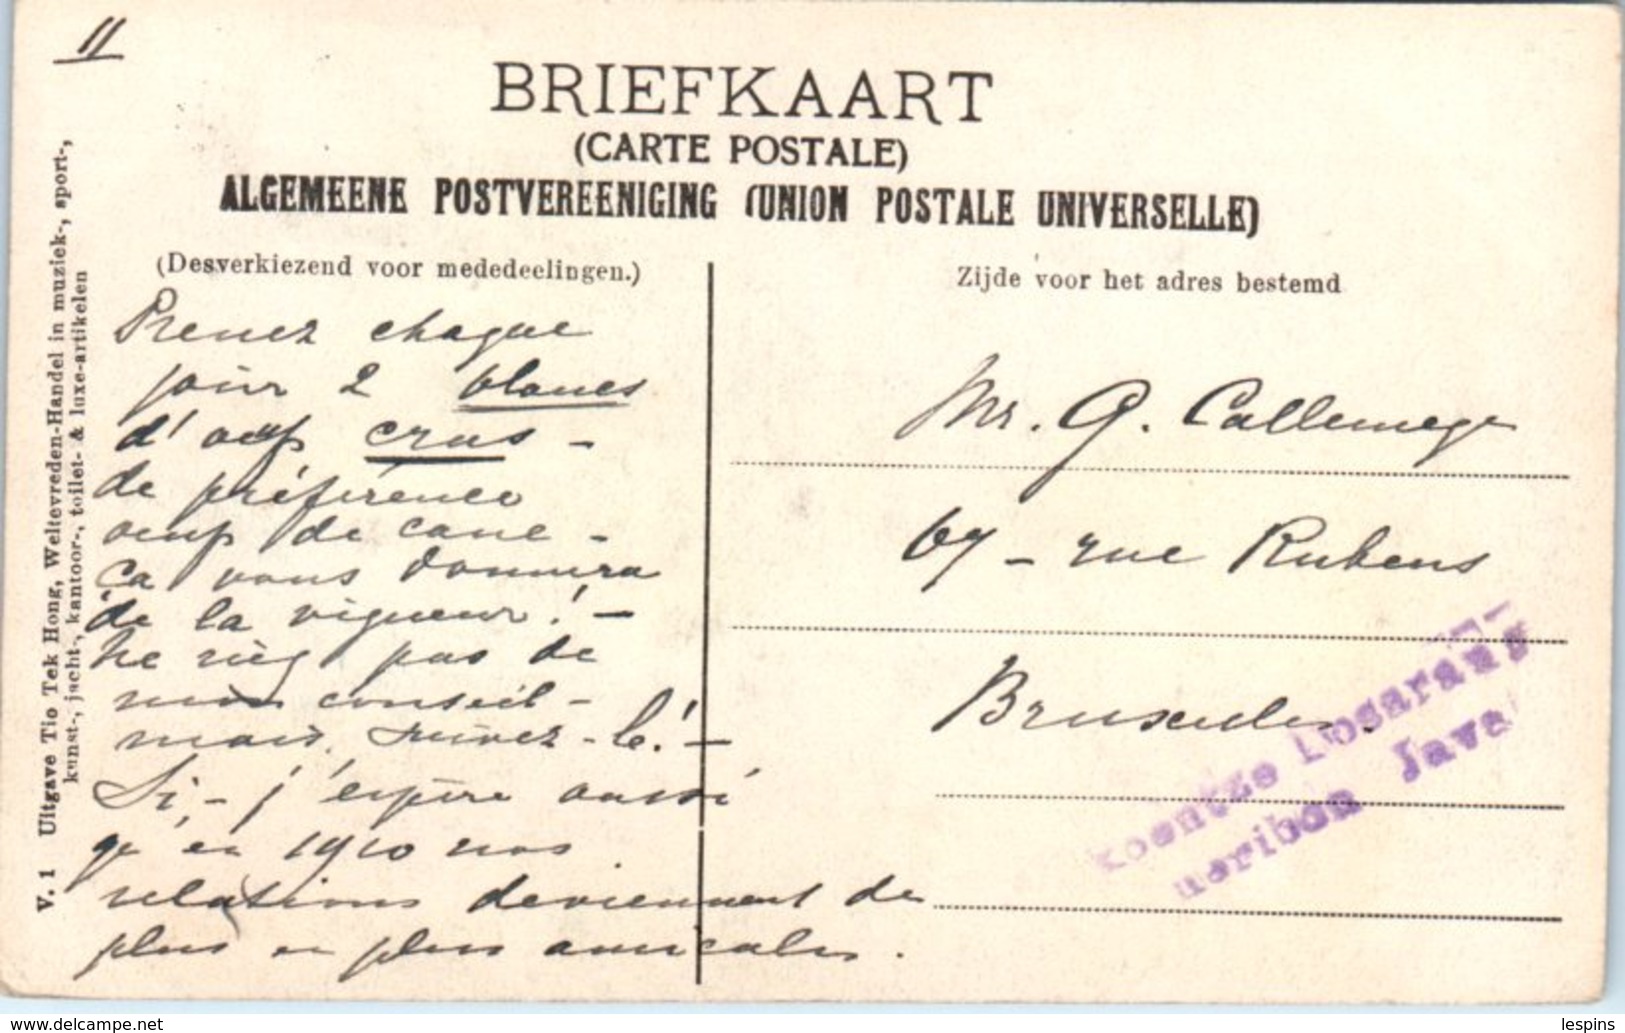 11
BRIEFKAART
(CARTE POSTALE)
ALGEMEENE POSTVEREENIGING (UNION POSTALE UNIVERSELLE)
(Desverkiezend voor mededeelingen.)
Zijde voor het adres bestemd
Prenez chaque
jour 2 blancs
d'oeufs crus -
de préférence
oeufs de cane -
ça vous donnera
de la vigueur! -
Ne riez pas de
mon conseil -
mais, suivez-le! -
Si, - j'espère aussi
qu'en 1910 nos
relations deviennent de
plus en plus amicales.
Mr. G. Callemeye
67 - rue Rubens
Bruxelles.
Losarang
Cheribon Java
V. 1 Uitgave Tio Tek Hong, Weltevreden-Handel in muziek-, sport-,
kunst-, jacht-, kantoor-, toilet- & luxe-artikelen
www.delcampe.net
lespins